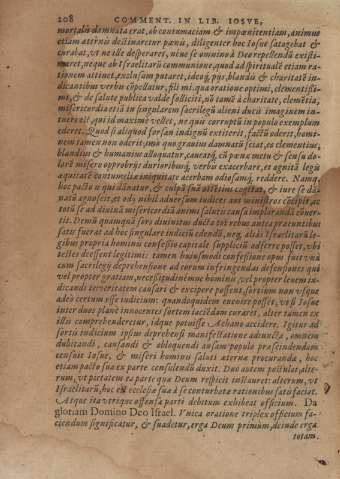 208 COMMENT. IN LIB. IOSVE,
mortalis damnata erat, ob contumaciam & impœnitentiam, animus
etiam æternis destinaretur pœnis, diligenter hoc Iosue satagebat &
curabat, vt ne ille desperaret, néue se omnino à Deo repellendũ existi-
maret, neque ab Israëlitarũ communione, quod ad spiritualẽ etiam ra-
tionem attinet, exclusum putaret, ideoq́; pijs, blandis & charitatẽ in-
dicantibus verbis cõpellatur, fili mi. qua oratione optimi, clementissi-
mi, & de salute publica valde solliciti, nũ tamẽ à charitate, clemẽtia,
misericordia etiã in singularem sacrilegũ alieni ducis imaginem in-
tueri est, qui id maximè vellet, ne quid corruptũ in populo exemplum
ederet. Quod si aliquod forsan indignũ extiterit, factũ oderit, homi-
nem tamen non oderit, imò quo grauius damnatũ sciat, eo clementius,
blandius & humanius alloquatur, caueatq́; cũ pœnæ metu & sensu do-
loris misero opprobrijs durioribusq́; verbis exacerbare, et cognitã legis
æquitatẽ contumelia iniquitate acerbam odiosamq́; reddere. Namq́;
hoc pacto is qui dãnatur, & culpã suã altius cogitat, & iure se dã-
natũ agnoscit, et odij nihil aduersum iudices aut ministros cõcipit, ac
totũ se ad diuinã misericordiã animi salutis causa implorandã conuer-
tit. Demũ quanquã sors diuinitus ducta tot rebus antea præeuntibus
satis fuerat ad hoc singulare indiciũ edendũ, neq́; alias Israëlitarũ le-
gibus propria hominis confessio capitale supplicium adferre posset, vbi
testes deessent legitimi: tamen huiusmodi confessione opus fuit vnà
cum sacrilegij deprehensione ad eorum infringendas defensiones qui
vel propter gratiam, necessitudinémue hominis vel propter leuem in-
dicandi temeritatem causari & excipere possent, sortium non vsque
adeò certum esse iudicium: quandoquidem euenire posset, vt si Iosue
inter duos planè innocentes sortem iaciẽdam curaret, alter tamen ex
illis comprehenderetur, idque potuisse Achano accidere. Igitur ad
sortis iudicium ipsius deprehensi manifestatione adiuncta, omnem
dubitandi, causandi & obloquendi ansam populo præscindendam
censuit Iosue, & miseri hominis saluti æternæ procuranda, hoc
etiam pacto sua ex parte consulendũ duxit. Duo autem postulat, alte-
rum, vt pietatem ea parte qua Deum respicit instauret: alterum, vt
Israëlitarũ, hoc est ecclesiæ sua à se conturbata rationibus satisfaciat.
Atque ita vtrique offensæ parti debitum exhibeat officium. Da
gloriam Domino Deo Israel. Vnica oratione triplex officium fa-
ciendum significatur, & suadetur, erga Deum primùm, deinde erga
totam.